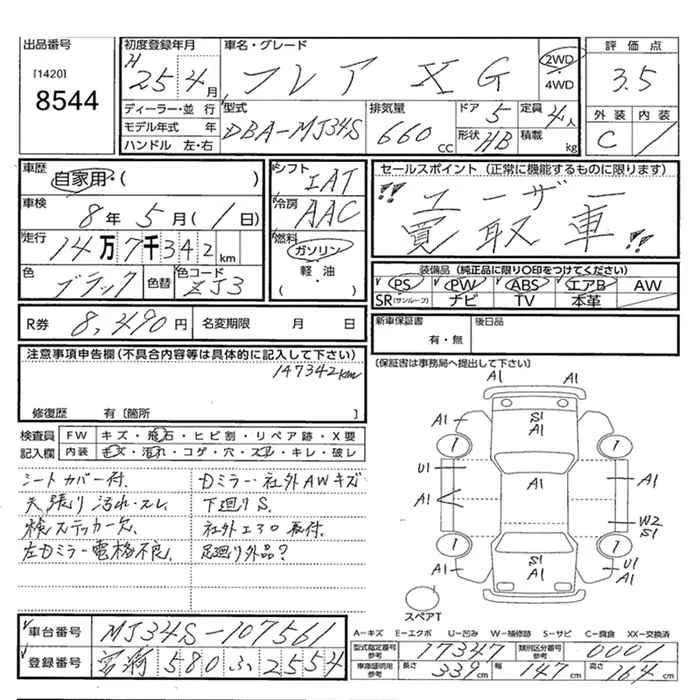 出品番号
[1420]
8544
初度登録年月
H 25年 4月
車名・グレード
フレア XG
2WD
・
4WD
評価点
3.5
外装 内装
C 1
ディーラー・並行
モデル年式 年
ハンドル 左・右
型式
DBA-MJ34S
排気量
660 CC
ドア 5
形状 HB
定員 4人
積載 kg
車歴
自家用・( )
車検
8年 5月 (1日)
走行
14万7千342km
色
ブラック
色替
色コード
ZJ3
シフト
IAT
冷房
AAC
燃料
ガソリン
軽・油
( )
セールスポイント (正常に機能するものに限ります)
!! ユーザー
買取車 !!
装備品 (純正品に限り○印をつけてください)
PS PW ABS エアB AW
SR(サンルーフ) ナビ TV 本革
R券 8,490円
名変期限 月 日
新車保証書
有・無
後日品
(保証書は事務局へ提出して下さい)
注意事項申告欄(不具合内容等は具体的に記入して下さい)
147342km
修復歴 有〔箇所 〕
検査員
記入欄
FW キズ・飛石・ヒビ割・リペア跡・X要
内装 キズ・汚れ・コゲ・穴・スレ・キレ・破レ
シートカバー付. Dミラー・社外AWキズ
天張り汚れ・スレ. 下廻りS.
検ステッカー欠. 社外エアロ取付.
左Dミラー電格不良. 足廻り外品?
A1 A1
S1
A1
A1 A1
1 1
U1
A1 A1
W2
S1
1 1
S1
A1
A1 U1
A1
A1 A1
スペアT
車台番号 MJ34S-107561
登録番号 580 ふ 2554
A―キズ E―エクボ U―凹み W―補修跡 S―サビ C―腐食 XX―交換済
型式指定番号
参考
17347
類別区分番号
参考
0001
車庫証明用
参考
長さ 339cm 幅 147cm 高さ 164cm